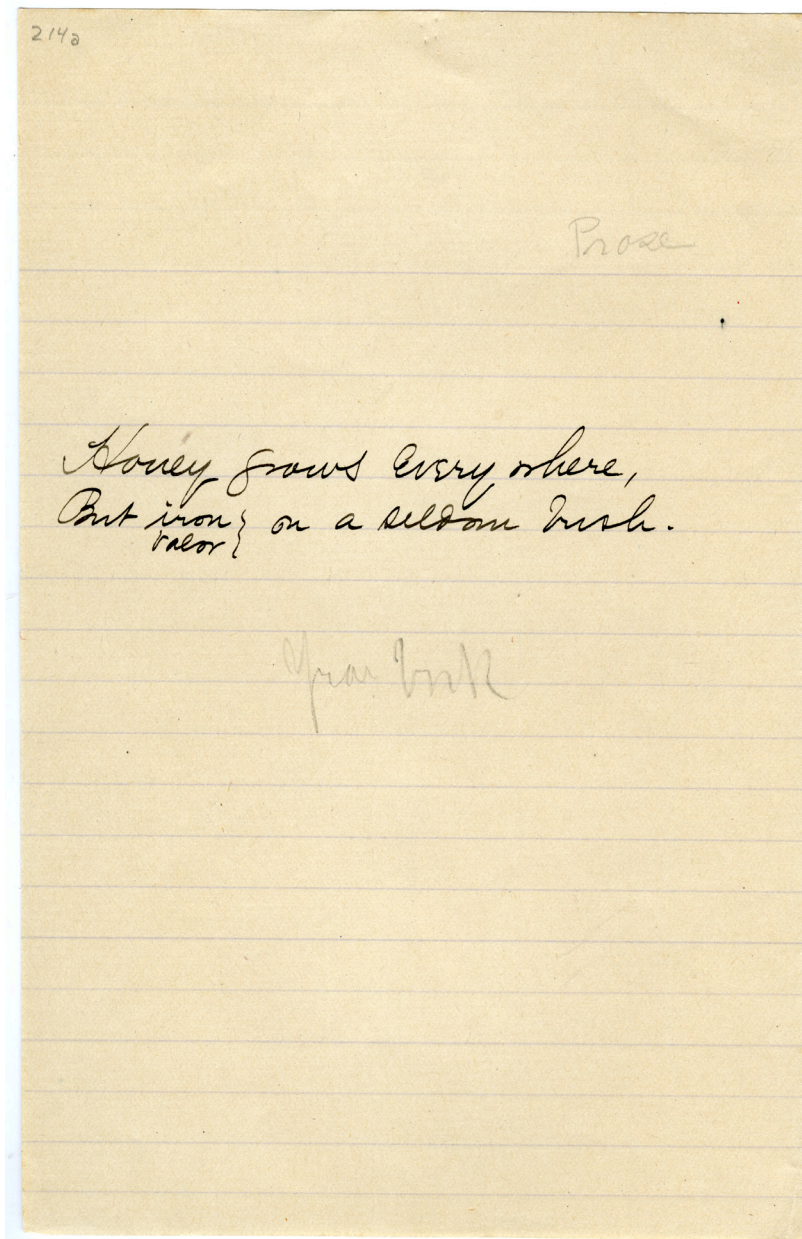 214a
Prose
Honey grows everywhere,
But iron } on a seldom bush.
valor }
Year book